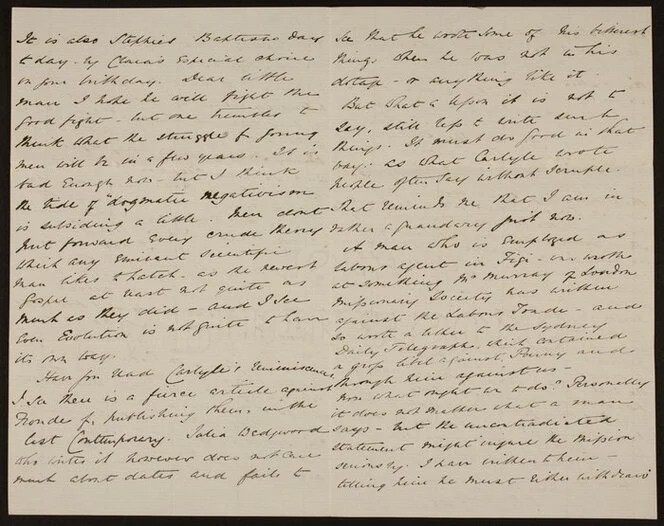 It is also Stephie's Baptism Day
today - by Clara's Especial choice
on your birthday. Dear little
man I hope he will fight the
good fight - but one trembles to
think what the struggle for young
men will be in a few years. It is
bad Enough now - but I think
the tide of "dogmatic negativism
is subsiding a little. Men dont
put forward Every crude theory
which any Eminent Scientific
man likes to hatch - as the newest
Gospel at least not quite as
much as they did - and I see
Even Evolution is not quite to have
its own way.
Have you read Carlyle's reminiscences,
I see there is a fierce article against
Froude for publishing them, in the
last Contemporary. Julia Wedgwood
who writes it however does not care
much about dates and fails to
see that he wrote some of his bitterest
things when he was not in his
dotage - or anything like it.
But what a lesson it is not to
say, still less to write such
things. It must do good in that
way. as what Carlyle wrote
people often say without scruple.
That reminds me that I am in
rather a quandary just now.
A man who is Employed as
labour agent in Fiji - was wroth
at something Mr Murray of London
Missionary Society has written
against the Labour Trade - and
so wrote a letter to the Sydney
Daily Telegraph, which contained
a gross libel against Penny and
through him against us -
now what ought we to do? Personally
it does not matter what a man
says - but the uncontradicted
statement might injure the Mission
seriously. I have written to him -
telling him he must Either withdraw